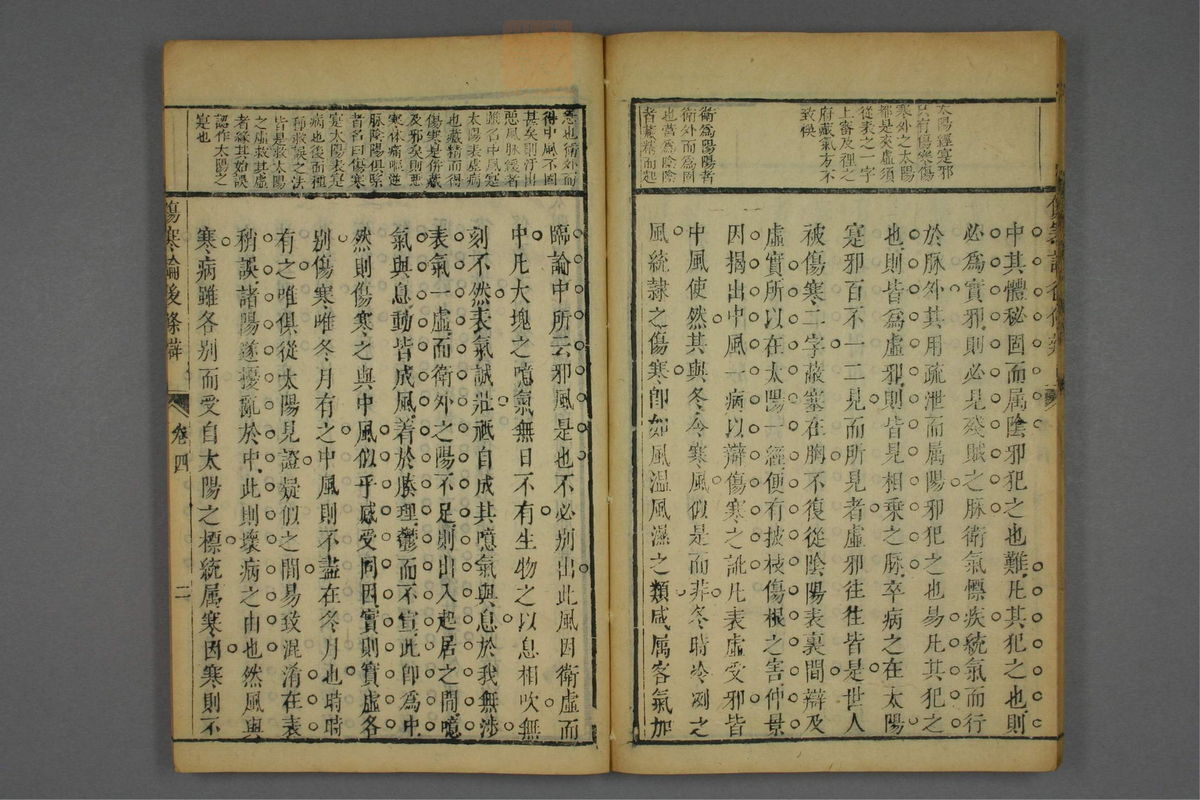 太陽經寔邪
寒外之太陽
都是表虛須
從表之一字
上審及裡之
府藏氣方不
致悞
衛為陽陽者
衛外而為固
也營為陰陰
者藏精而起
中其體秘固而属陰邪犯之也難凡其犯之也則
必為實邪則必見殘賊之脉衛氣慓疾統氣而行
於脉外其用疏泄而属陽邪犯之也易凡其犯之
也則皆為虛邪則皆見相乘之脉卒病之在太陽
寔邪百不一二見而所見者虛邪往往皆是世人
被傷寒二字叢塞在胸不復從陰陽表裏間辯及
虛實所以在太陽一經便有披枝傷根之害仲景
因揭出中風一病以辯傷寒之訛凡表虛受邪皆
中風使然其與冬令寒風似是而非冬時冷冽之
風統隸之傷寒卽如風溫風濕之類咸属客氣加
亟也衛外而
得中風不因
甚矣則汗出
惡風脉緩者
太陽表虛病
也藏精而得
傷寒是併藏
及邪矣則惡
寒体痛嘔逆
脉陰陽俱緊
者名曰傷寒
寔太陽表寔
病也後面種
種救悞之法
皆是救太陽
之虛救其虛
者緣其始誤
認作太陽之
寔也
臨論中所云邪風是也不必别出此風因衛虛而
中凡大塊之噫氣無日不有生物之以息相吹無
刻不然表氣誠壯祗自成其噫氣與息於我無涉
表氣一虛而衛外之陽不足則出入起居之間噫
氣與息動皆成風着於腠理鬱而不宣此卽為中
然則傷寒之與中風似乎感受同因實則實虛各
别傷寒唯冬月有之中風則不盡在冬月也時時
有之唯俱從太陽見證疑似之間易致混淆在表
稍誤諸陽遂擾亂於中此則壞病之由也然風與
寒病雖各别而受自太陽之標統属寒因寒則不
傷寒論後條辯
卷四
二